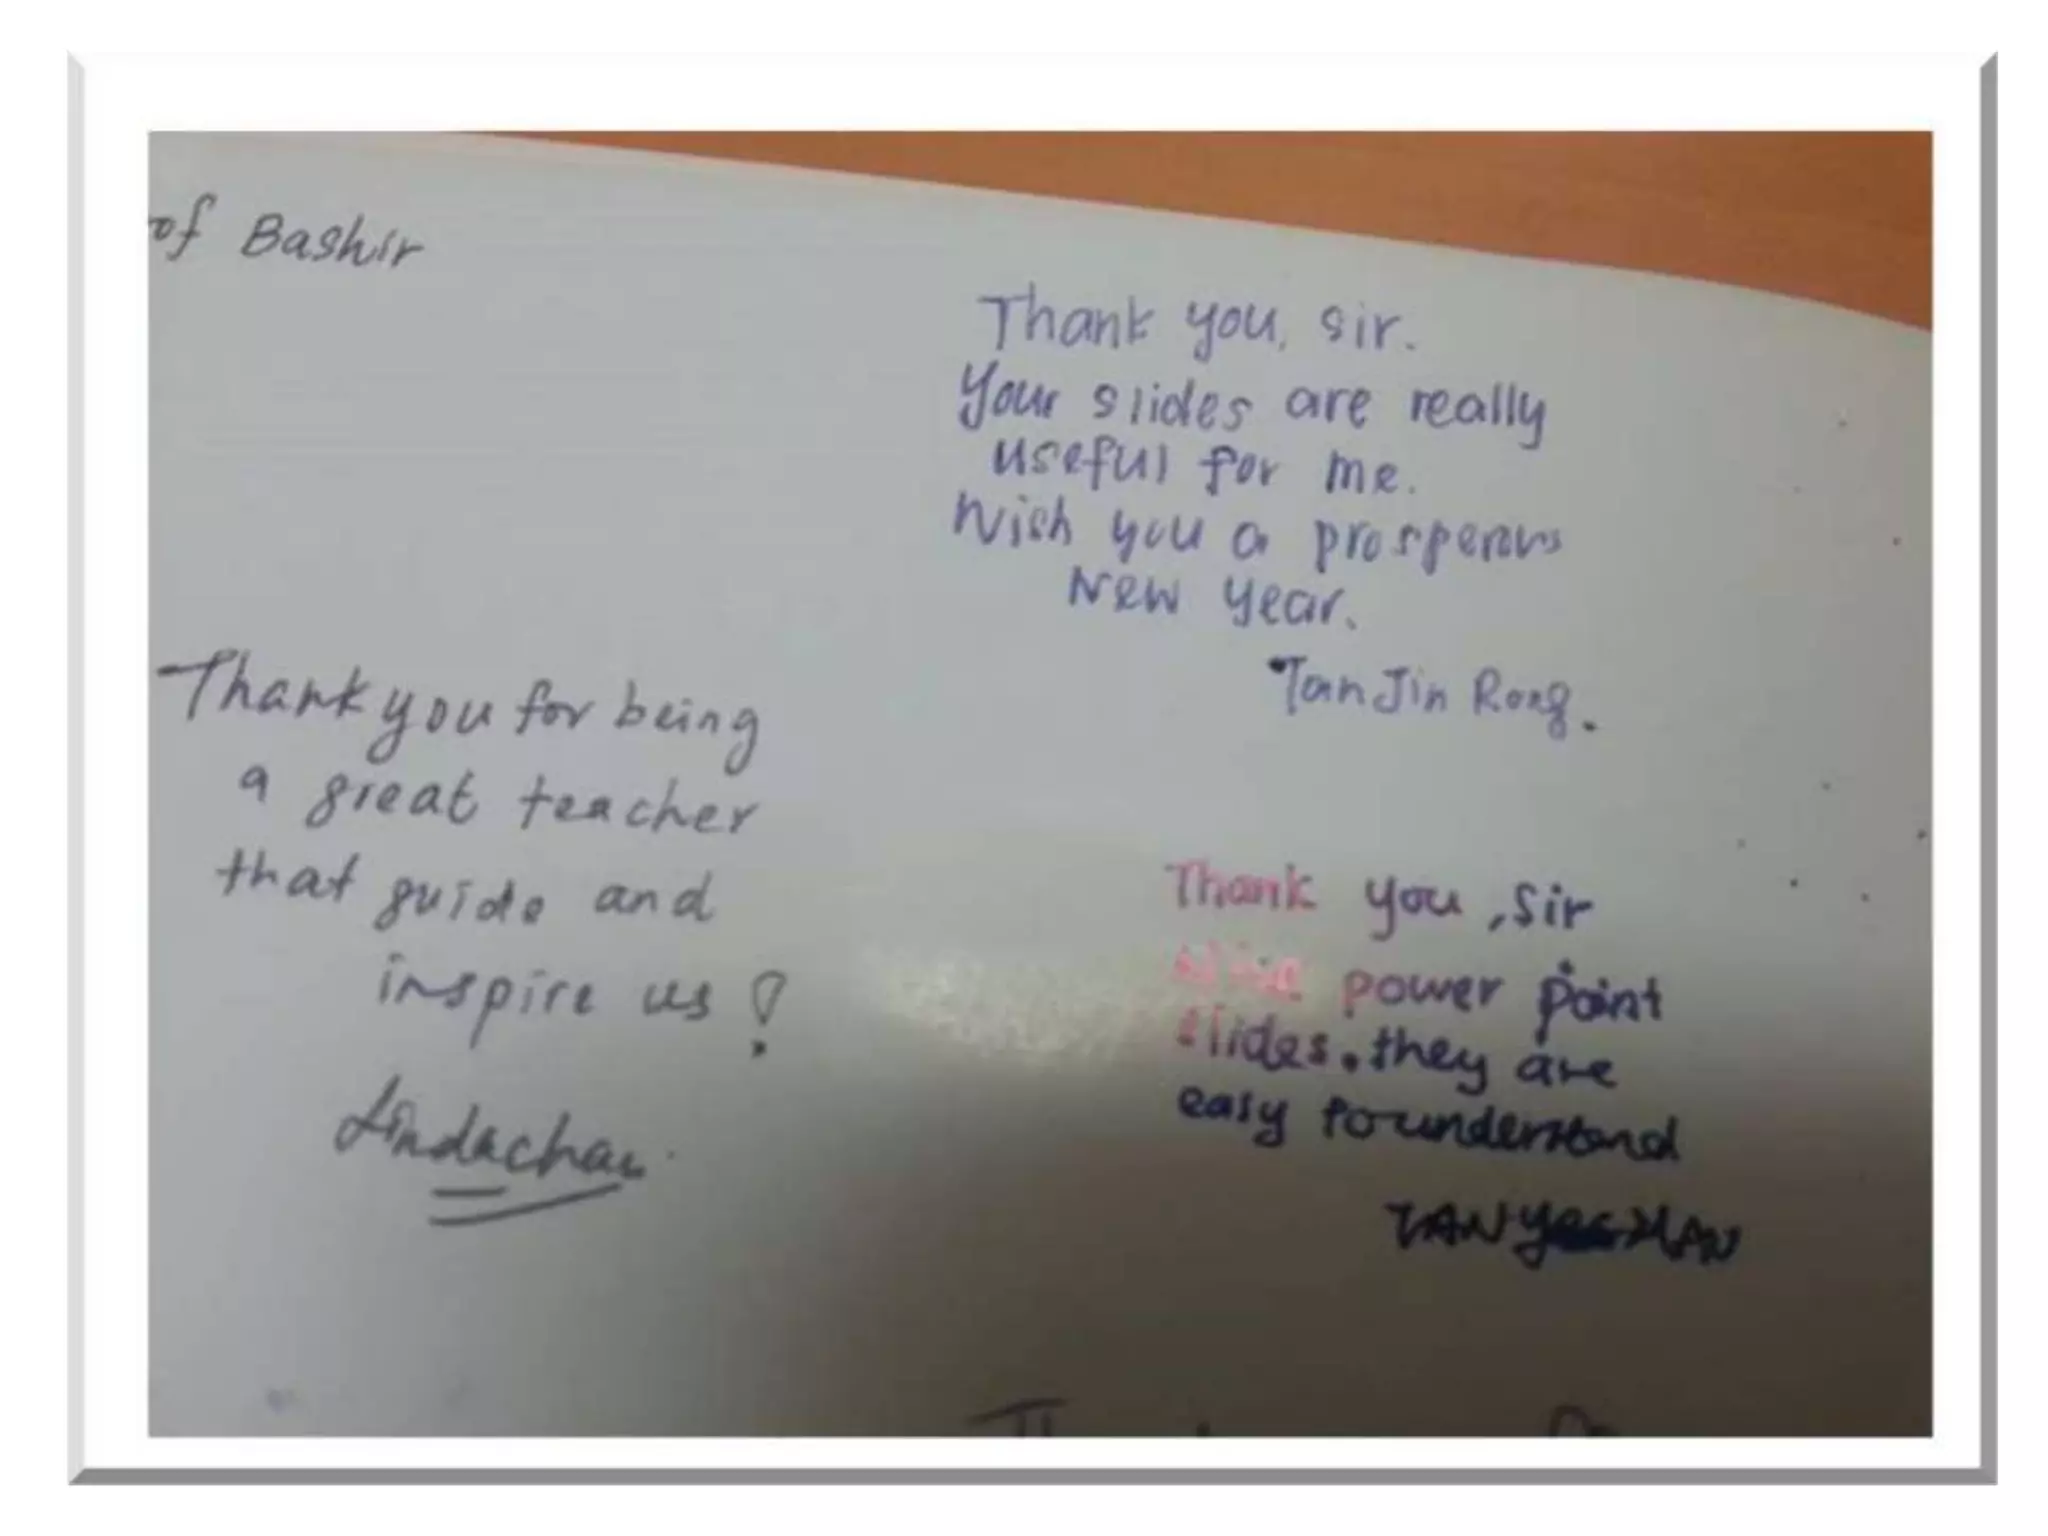 of Bashir
Thank you, sir.
Your slides are really
useful for me.
Wish you a prosperous
New Year.
Tan Jin Rong.
Thank you for being
a great teacher
that guide and
inspire us!
Lindachau
Thank you, sir
power point
slides. they are
easy to understand
TAN YEE HAN